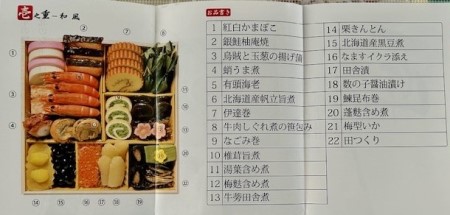 壱之重－和風
お品書き
1 紅白かまぼこ
2 銀鮭柚庵焼
3 烏賊と玉葱の揚げ蒲
4 蛸うま煮
5 有頭海老
6 北海道産帆立旨煮
7 伊達巻
8 牛肉しぐれ煮の笹包み
9 なごみ巻
10 椎茸旨煮
11 湯葉含め煮
12 梅麩含め煮
13 牛蒡田舎煮
14 栗きんとん
15 北海道産黒豆煮
16 なますイクラ添え
17 田舎漬
18 数の子醤油漬け
19 鰊昆布巻
20 蓬麩含め煮
21 梅型いか
22 田つくり
①
②
③
④
⑦
⑪
⑫
⑬
⑭
⑮
⑯
⑱
⑲
㉒